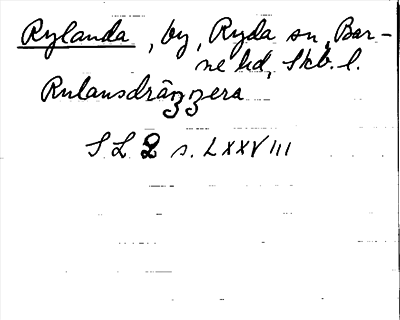 Rylanda, by, Ryda sn, Bar-
ne hd, Skb. l.
Rulansdräzzera
S L 2 s. LXXVIII